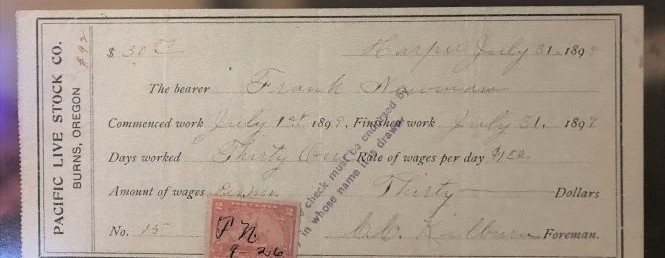 PACIFIC LIVE STOCK CO.
BURNS, OREGON
#92
$ 30 00 Harper July 31. 189
The bearer Frank
Commenced work July 1st 1898, Finished work July 31. 1898
Days worked Thirty One Rate of wages per day $1.00
Amount of wages Thirty Dollars
No. 15 Foreman.
check must be endorsed by
in whose name it is drawn
2 2
9 26